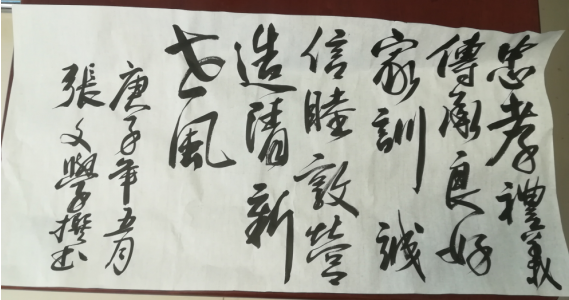 忠孝禮義
傳承良好
家訓誠
信睦敦營
造清新
世風
庚子年五月
張文學撰書